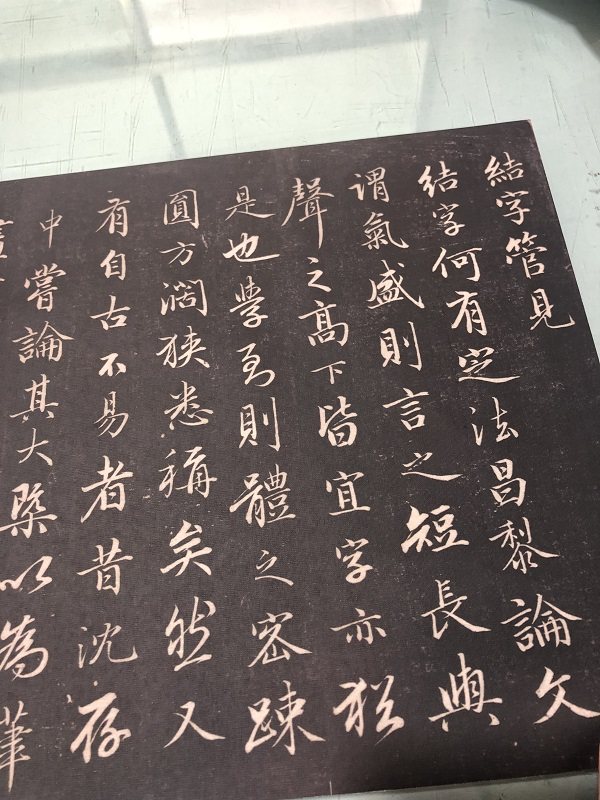 結字管見
結字何有定法昌黎論文
謂氣盛則言之短長與
聲之高下皆宜字亦猶
是也學到則體之密踈
圓方濶狹悉稱矣然又
有自古不易者昔沈存
中嘗論其大槩以為筆